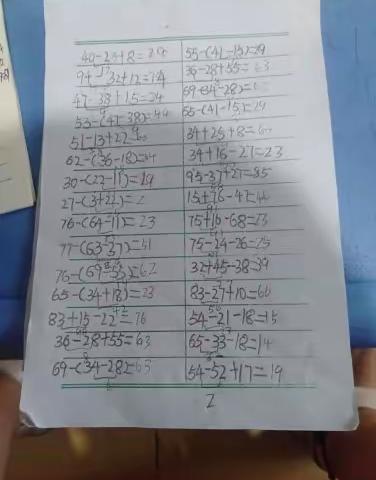 40-23+8=29 55-(41-15)=29
32+12=14 36-28+55=63
47-38+15=24 69-(34-28)=
53-(47-38)=44 55-(41-15)=29
51-13+22 34+25+8=
62-(36-18)=44 34+16-27=23
30-(22-11)=19 95-37+27=85
27-(3+22)=2 15+76-47=44
76-(64-11)=23 75+16-68=23
77-(63-37)=41 75-24-26=25
76-(69-55)=62 32+45-38=39
65-(34+18)=23 83-27+10=66
83+15-22=76 54-21-18=15
36-28+55=63 65-33-18=14
69-(34-28)=63 54-52+17=19
2